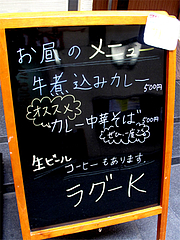 お昼のメニュー
牛煮込みカレー 500円
オススメ
カレー中華そば 500円
ぜひ一度
生ビール コーヒーもあります。
ラグーK